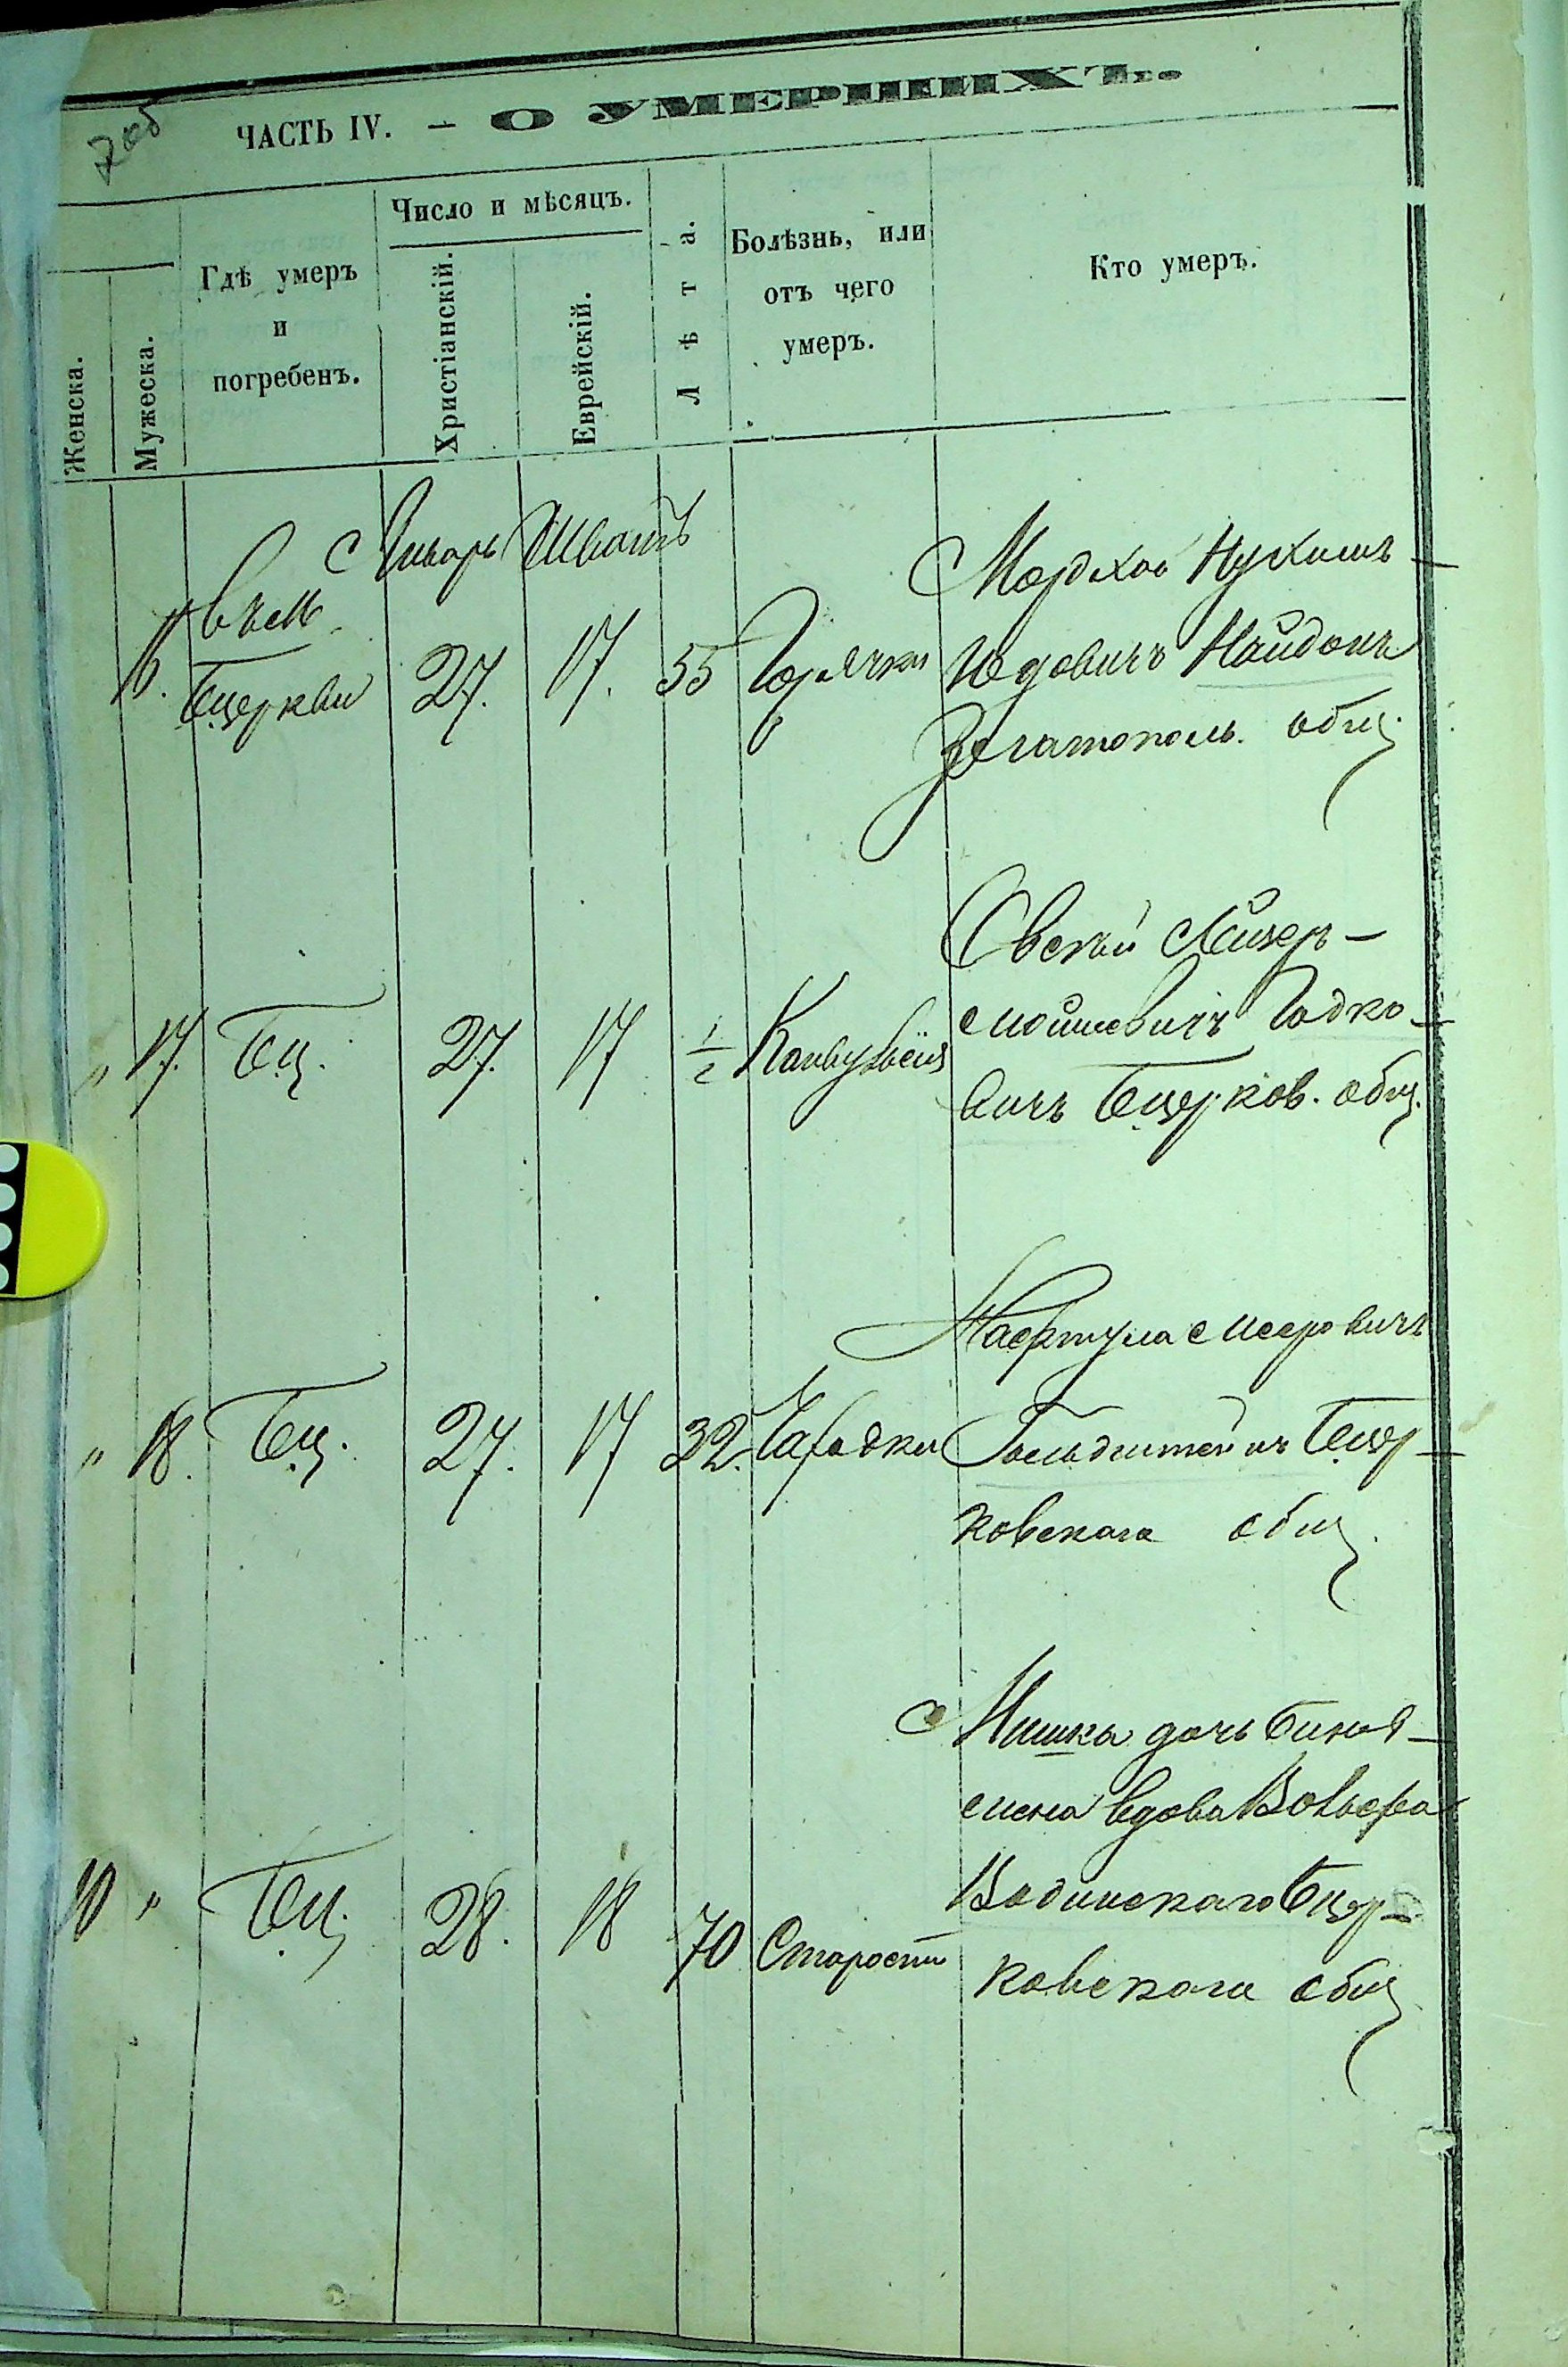 7об
ЧАСТЬ IV. — О УМЕРШИХЪ.
Женска.
Мужеска.
Гдѣ умеръ
и
погребенъ.
Число и мѣсяцъ.
Христіанскій.
Еврейскій.
Лѣта.
Болѣзнь, или
отъ чего
умеръ.
Кто умеръ.
Январь Шватъ
въ м.
" 16. Бцеркви 27. 17. 55 Горячки
Мордхо Нухимъ
Юдовичъ Найдонъ
Златополь. общ.
" 17. Бц. 27. 17 1/2 Конвульсія
Овсей Лейзер-
Мошковичъ Годко-
вичъ Бцерков. общ.
" 18. Бц. 27. 17 32. Чахотки
Нафтула Меерович
Гольдштейнъ Бцер-
ковскаго общ.
10 " Бц. 28. 18 70 Старости
Мишка дочь Бинья-
мина вдова Вольфа
Водинскаго Бцер-
ковскаго общ